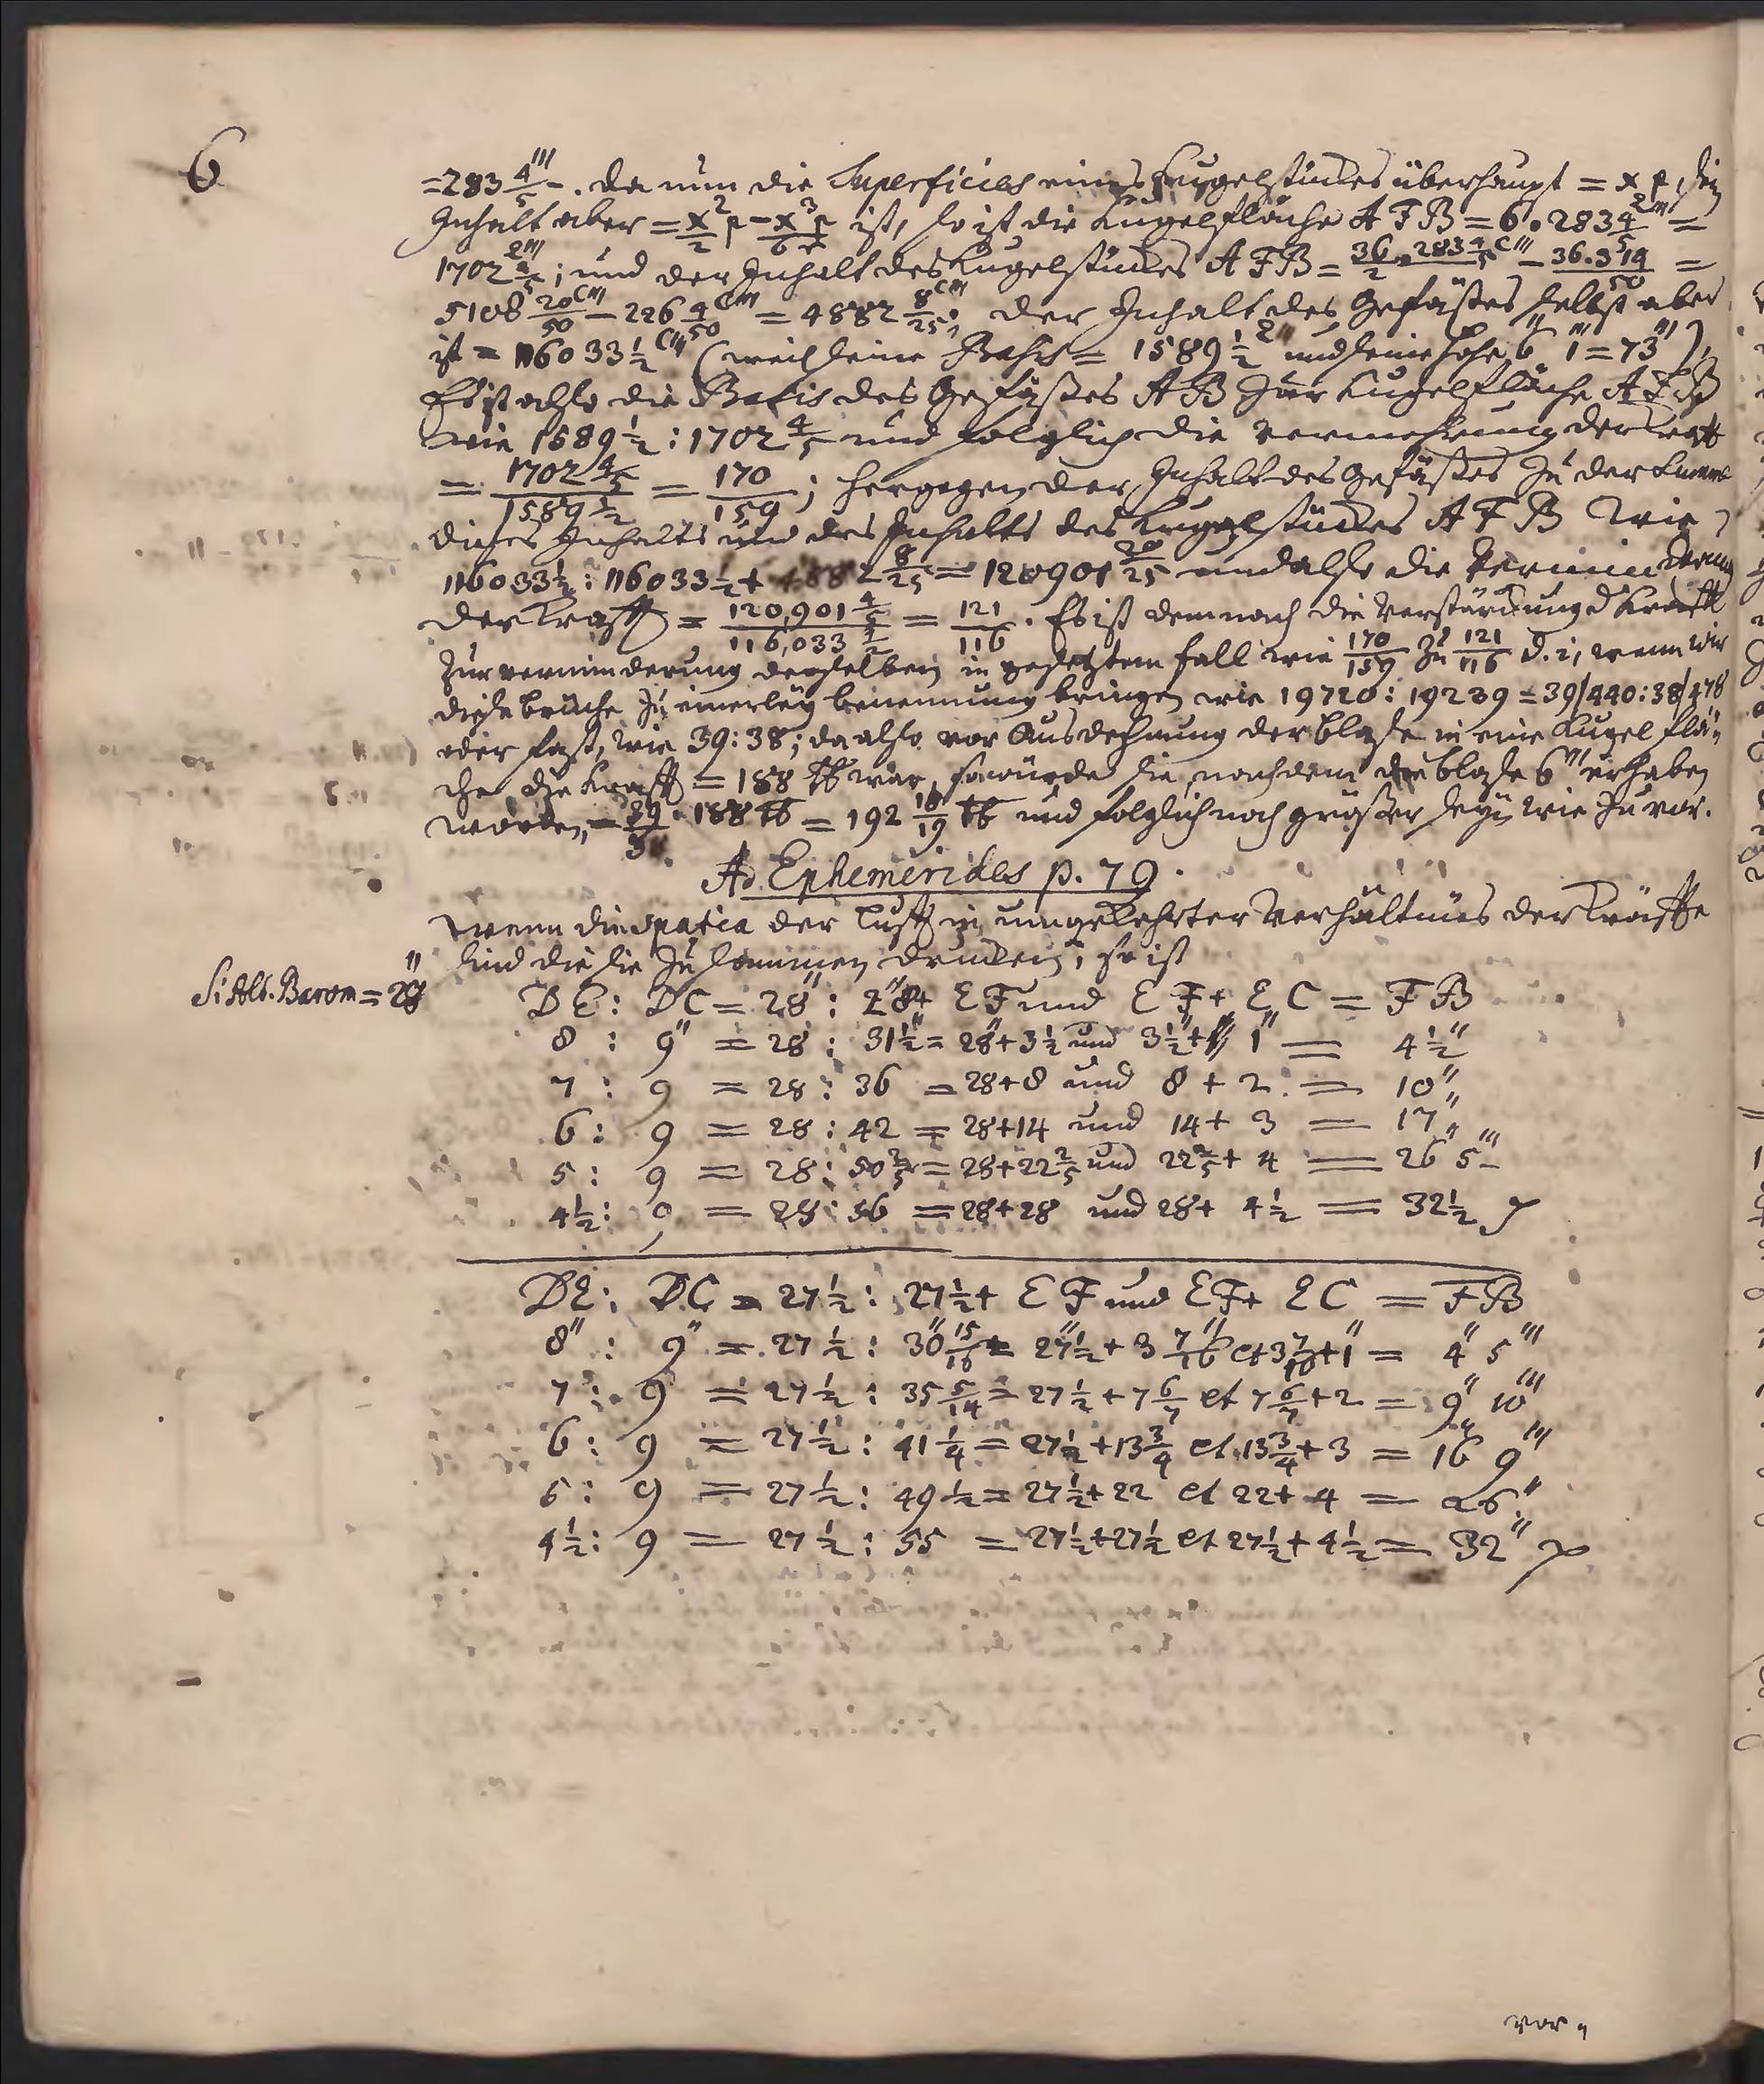 6
=283 4/5 '''. da nun die Superficies eines Kugelstückes überhaupt = x p, sein
Inhalt aber = x²/2 p − x³p/6r ist, so ist die Kugelfläche AFB = 6 . 283 4/5 2''' =
1702 4/5 2'''; und der Inhalt des Kugelstückes AFB = 36/2 . 283 4/5 C''' − 36.314/50 =
5108 20/50 C''' − 226 4/50 C''' = 4882 8/25 C'''; der Inhalt des Gefäßes selbst aber
ist = 116033 1/2 C''' (weil seine Basis = 1589 1/2 2''' und seine Höhe 6'' 1''' = 73'''),
Es ist also die Basis des Gefäßes AB zur Kugelfläche AFB
wie 1589 1/2 : 1702 4/5 und folglich die Vermehrung der Krafft
= 1702 4/5 / 1589 1/2 = 170/159; hergegen der Inhalt des Gefäßes zu der Summe
dieses Inhalts und des Inhalts des Kugelstückes AFB wie
116033 1/2 : 116033 1/2 + 4882 8/25 = 120901 20/25 und also die Verminderung
der Krafft = 120,901 4/5 / 116,033 1/2 = 121/116. Es ist demnach die Verstärckung d Krafft
zur verminderung derselben in gesetztem fall wie 170/159 zu 121/116 d. i, wenn wir
diese brüche zu einerley benennung bringen wie 19720 : 19239 = 39/440 : 38/478
oder fast, wie 39 : 38; da also vor Ausdehnung der blase in eine Kugel flä-
che die Krafft = 188 ℔ war, so würde sie, nachdem die blase 6''' erhaben
worden, = 39/38 . 188 ℔ = 192 18/19 ℔ und folglich noch größer seyn wie zu vor.
Ad. Ephemerides p. 79.
Wenn die spatia der Lufft in umgekehrter Verhältnis der Kräffte
sind die sie zusammen drucken, so ist
Si Alt. Barom = 28''
DE : DC = 28'' : 28'' + EF und EF + EC = FB
8 : 9'' = 28 : 31 1/2'' = 28'' + 3 1/2 und 3 1/2'' + 1'' = 4 1/2''
7 : 9 = 28 : 36 = 28 + 8 und 8 + 2 = 10''
6 : 9 = 28 : 42 = 28 + 14 und 14 + 3 = 17''
5 : 9 = 28 : 50 2/5 = 28 + 22 2/5 und 22 2/5 + 4 = 26'' 5'''
4 1/2 : 9 = 28 : 56 = 28 + 28 und 28 + 4 1/2 = 32 1/2
DE : DC = 27 1/2 : 27 1/2 + EF und EF + EC = FB
8'' : 9'' = 27 1/2 : 30'' 15/16 = 27'' 1/2 + 3 7/16'' et 3 7/16 + 1'' = 4'' 5'''
7 : 9 = 27 1/2 : 35 5/14 = 27 1/2 + 7 6/7 et 7 6/7 + 2 = 9'' 10'''
6 : 9 = 27 1/2 : 41 1/4 = 27 1/2 + 13 3/4 et 13 3/4 + 3 = 16 9'''
5 : 9 = 27 1/2 : 49 1/2 = 27 1/2 + 22 et 22 + 4 = 26''
4 1/2 : 9 = 27 1/2 : 55 = 27 1/2 + 27 1/2 et 27 1/2 + 4 1/2 = 32''
vor-